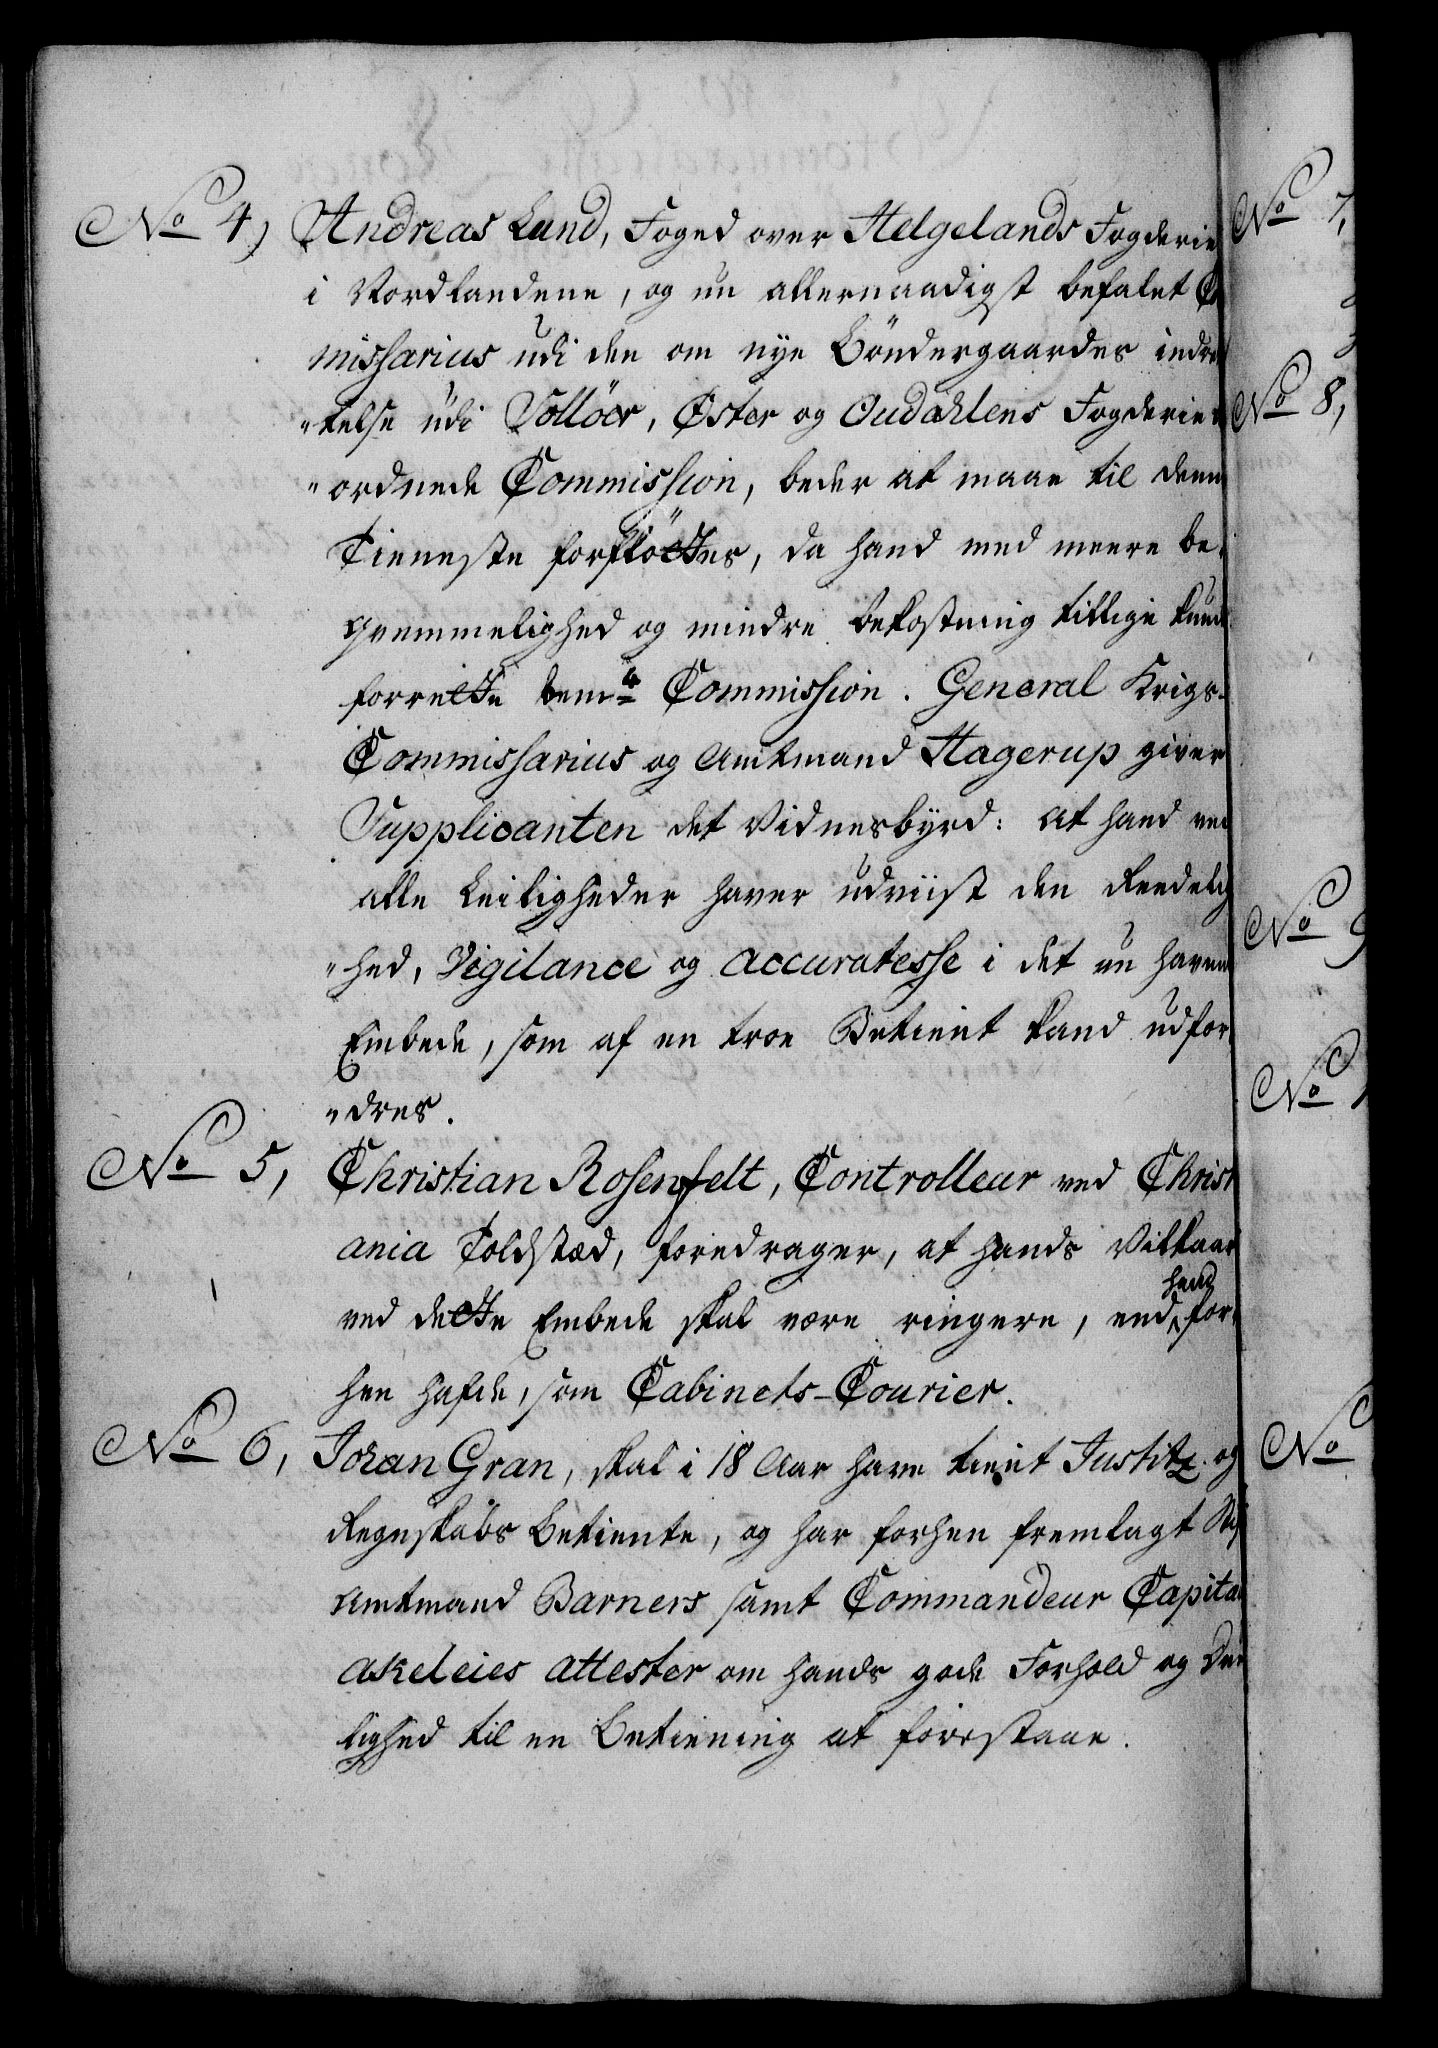 No 4, Andreas Lund, Foged over Helgelands Fogderie
i Nordlandene, og nu allernaadigst befalet Co
missarius udi den om nye Böndergaardes indre
„telse udi Solløer, Øster og Oudahlens Fogderie
„ordnede Commission, beder at maae til denne
Tieneste forfløttes, da hand med meere be„
qvemmelighed og mindre bekostning tillige kunde
forrette bemte Commission. General Krigs-
Commissarius og Amtmand Hagerup giver
Supplicanten det Vidnesbyrd: at hand ved
alle Leiligheder haver udviist den Reedelig
„hed, Vigilance og accuratesse i det nu havende
Embede, som af en troe Betient kand udfor„
„dres.
No 5, Christian Rosenfelt, Controlleur ved Christ
ania Toldsted, foredrager, at hands Vilkaar
ved dette Embede skal være ringere, end hand for„
hen hafde, som Cabinets-Courier.
No 6, Johan Gran, skal i 18 Aar have tient Justitz og
Regnskabs Betiente, og har forhen fremlagt Stif
Amtmand Barners samt Commandeur Capita
Akeleies Attester om hands gode Forhold og Due
lighed til en Betiening at forestaae.
No 7,
No 8,
No 9
No 1
No